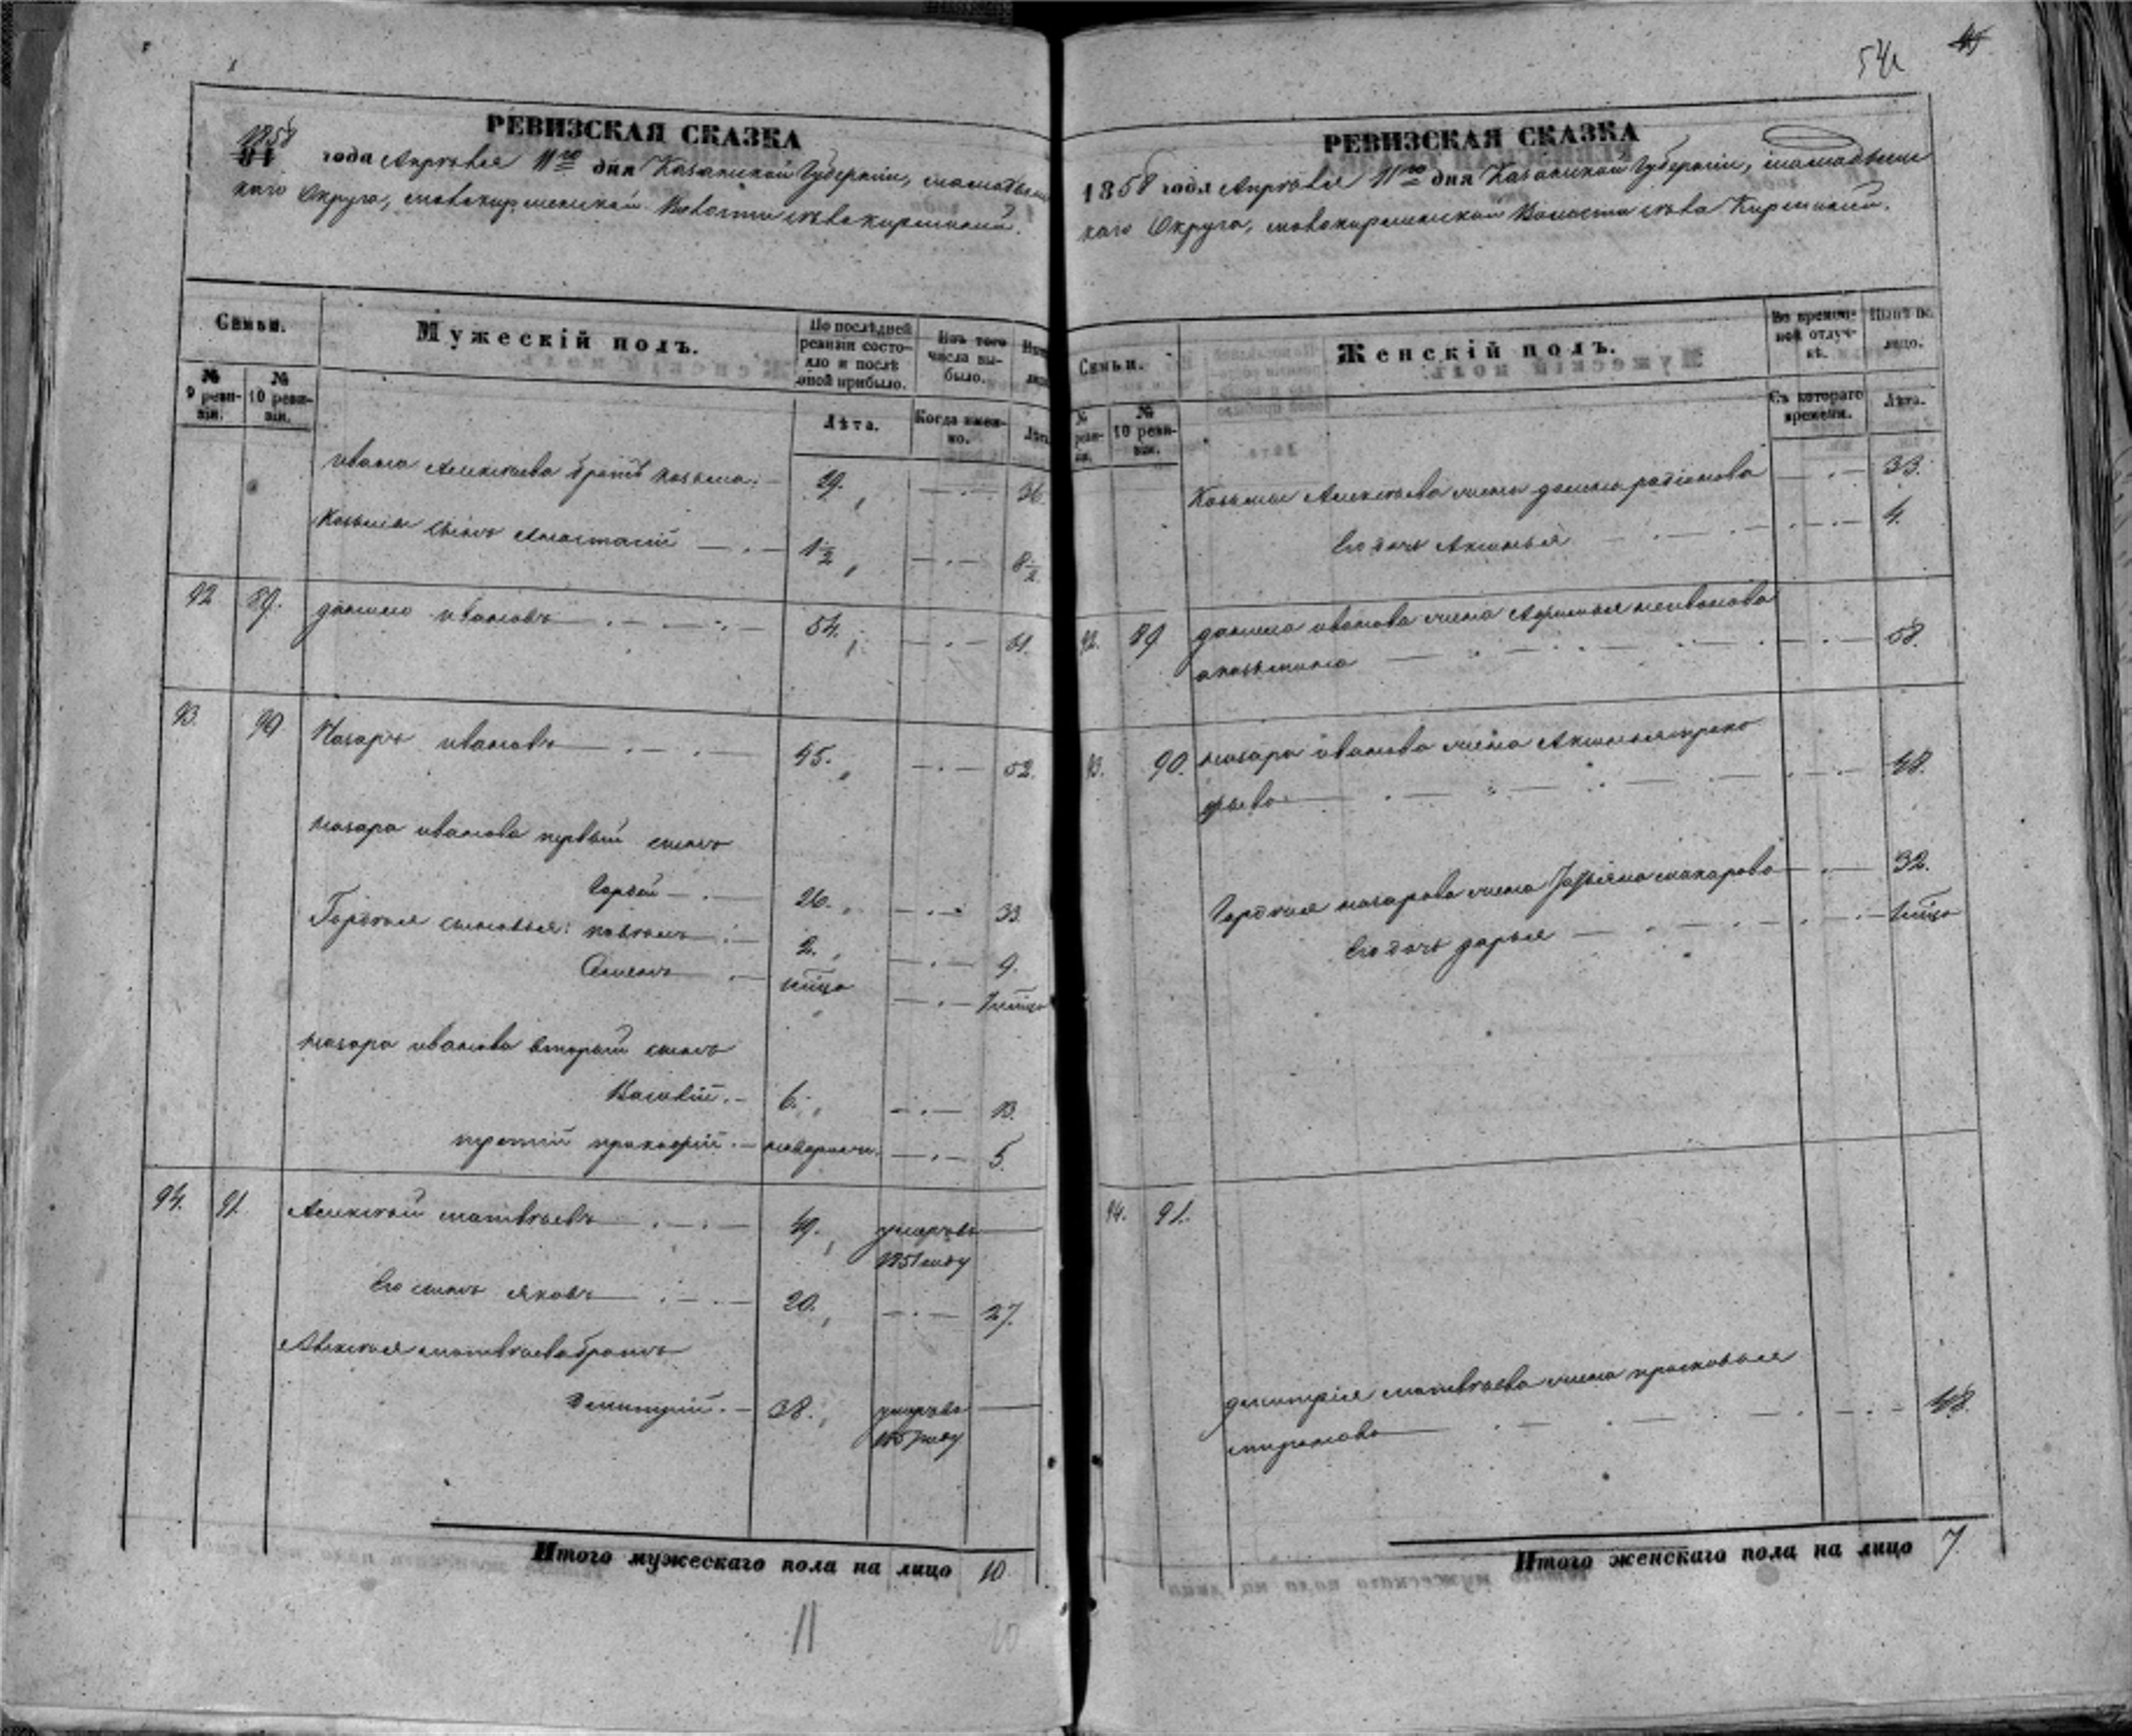 54
45
РЕВИЗСКАЯ СКАЗКА
1858 года Апрѣля 11го дня Казанской Губерніи, мамадыш
каго Округа, Волости
Семьи.
№ 9 ревизіи.
№ 10 ревизіи.
Мужескій полъ.
По послѣдней ревизіи состояло и послѣ оной прибыло.
Лѣта.
Изъ того числа выбыло.
Когда именно.
Лѣта
ивана Алексѣева братъ козьма 29. 36.
козьмы сынъ Анастасій 1½ 8½
92 89. данило ивановъ 54. 61.
93. 90 Назаръ ивановъ 45. 52.
назара иванова первый сынъ
Гордѣй 26. 33.
Гордѣя сыновья: 2. 9.
Семенъ
назара иванова вторый сынъ
Василій 6. 13.
третій прокофій 5.
94. 91. Алексѣй матвѣевъ 49. умеръ въ
1851 году
Его сынъ яковъ 20. 27.
Алексѣя матвѣева братъ
Дмитрій 38. умеръ въ
году
Итого мужескаго пола на лицо 10
11
РЕВИЗСКАЯ СКАЗКА
1858 года Апрѣля 11го дня Казанской Губерніи, мамадыш
каго Округа, Волости
Семьи.
№ 10 ревизіи.
Женскій полъ.
Во временной отлучкѣ.
Съ котораго времени.
Нынѣ на лицо.
Лѣта.
Козьмы Алексѣева жена домна родіонова 33.
Его дочь Аксинья 4.
92. 89 данила иванова жена 58.
93. 90. назара иванова жена Аксинья проко
фьева 48.
Гордѣя назарова жена Татьяна макарова 32.
Его дочь дарья
94. 91.
дмитрія матвѣева жена прасковья
миронова 48.
Итого женскаго пола на лицо 7